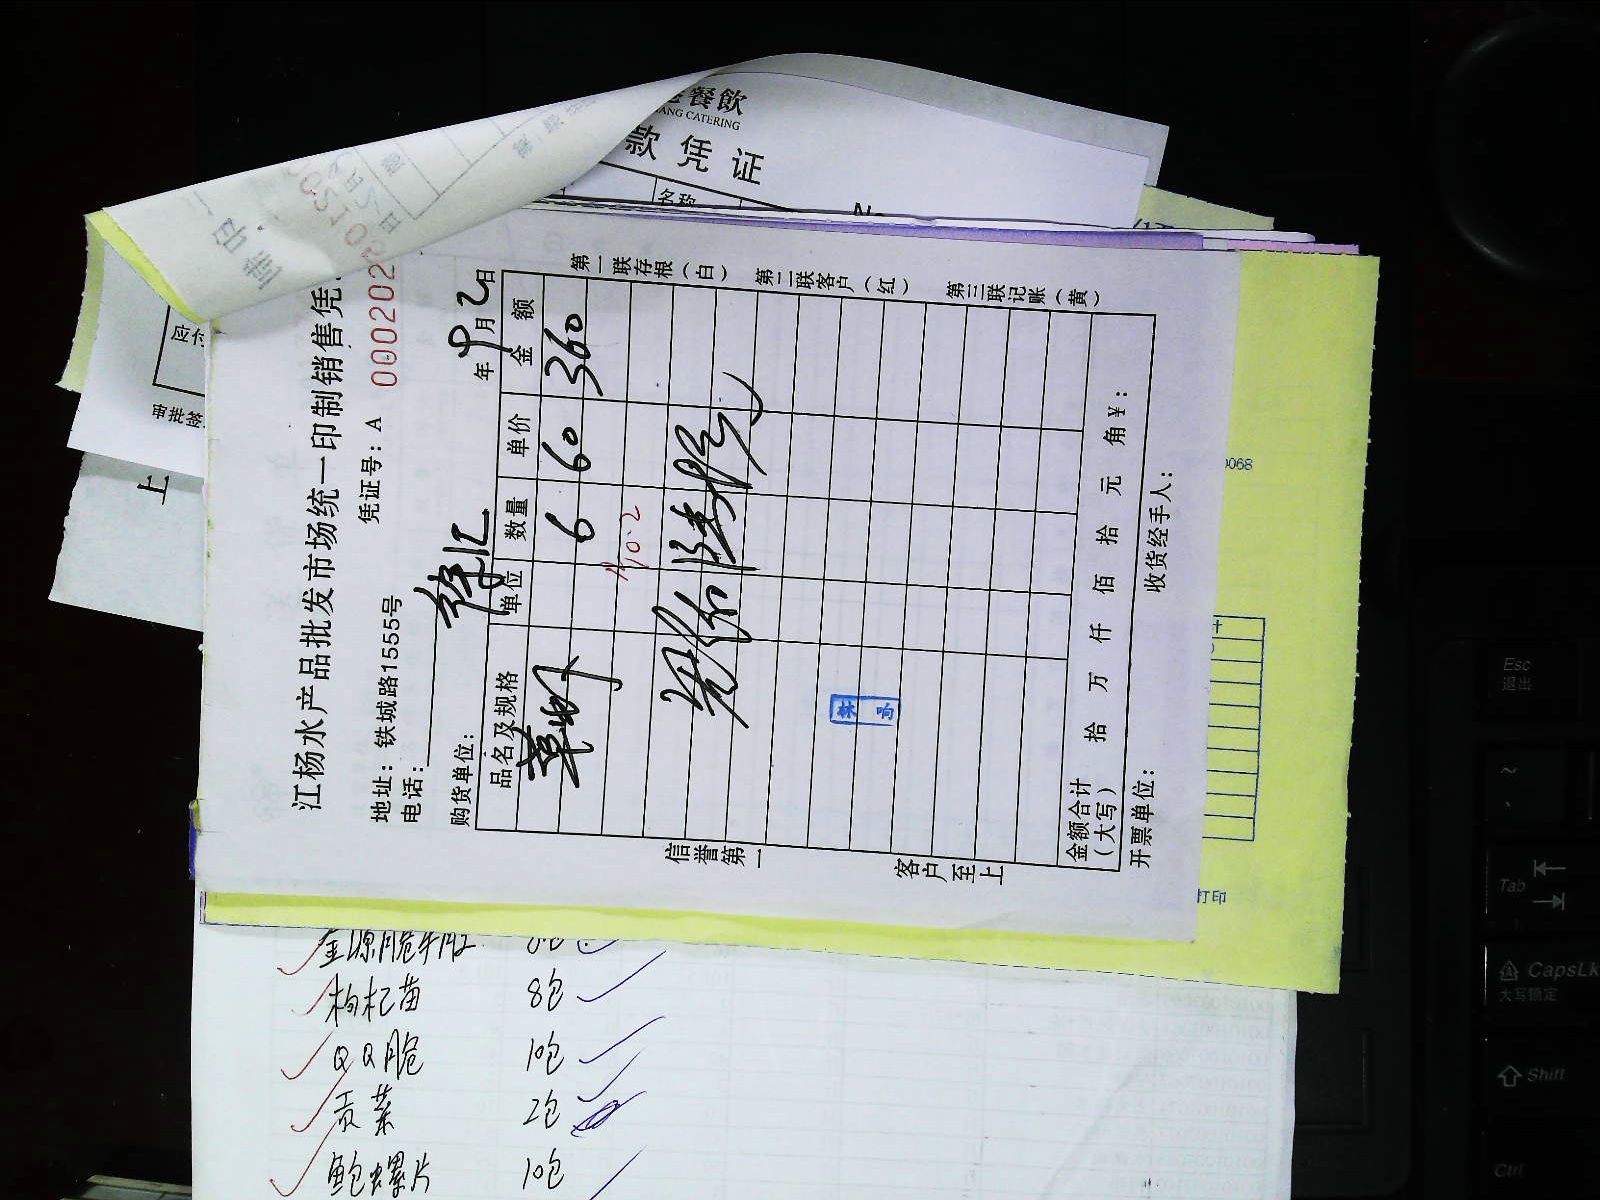 餐飲
ANG CATERING
款凭证
名称
应付
审批签
上
江杨水产品批发市场统一印制销售凭
地址：铁城路1555号
凭证号：A 000202
电话：
购货单位： 徐汇
年 9 月 2 日
品名及规格 单位 数量 单价 金额
草虾 6 60 360
第一联存根（白）
第二联客户（红）
第三联记账（黄）
信誉第一
客户至上
金额合计（大写） 拾 万 仟 佰 拾 元 角 ¥：
开票单位： 收货经手人：
0068
打印
枸杞苗 8包
QQ脆 10包
贡菜 2包
鲍螺片 10包
Esc
退出
Tab
CapsLk
大写锁定
Shift
Ctrl